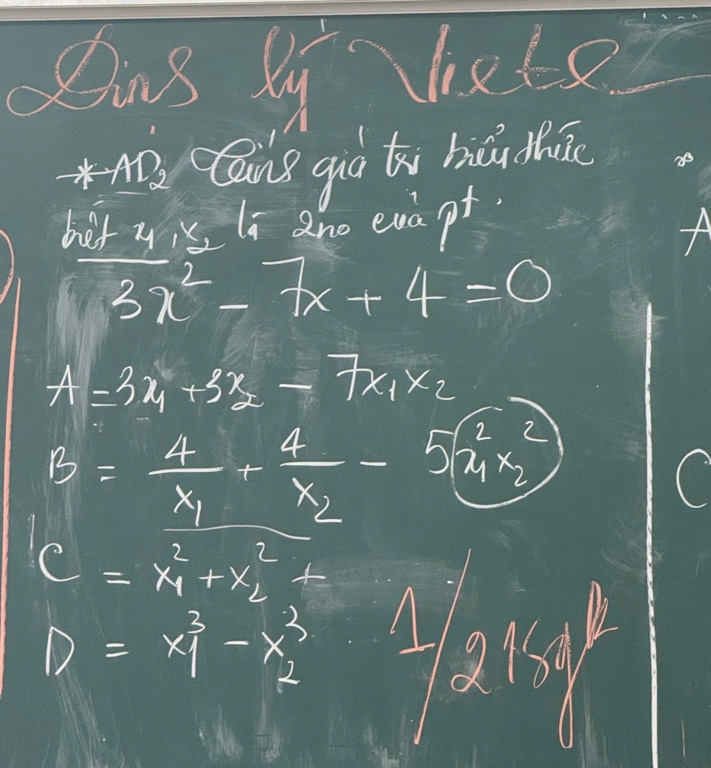 Định lý Viete
* AD2 Tính giá trị biểu thức
biết x₁, x₂ là 2no của pt.
3x² - 7x + 4 = 0
A = 3x₁ + 3x₂ - 7x₁x₂
B = 4/x₁ + 4/x₂ - 5x₁²x₂²
C = x₁² + x₂² +
D = x₁³ - x₂³
1/21sgk
A
C